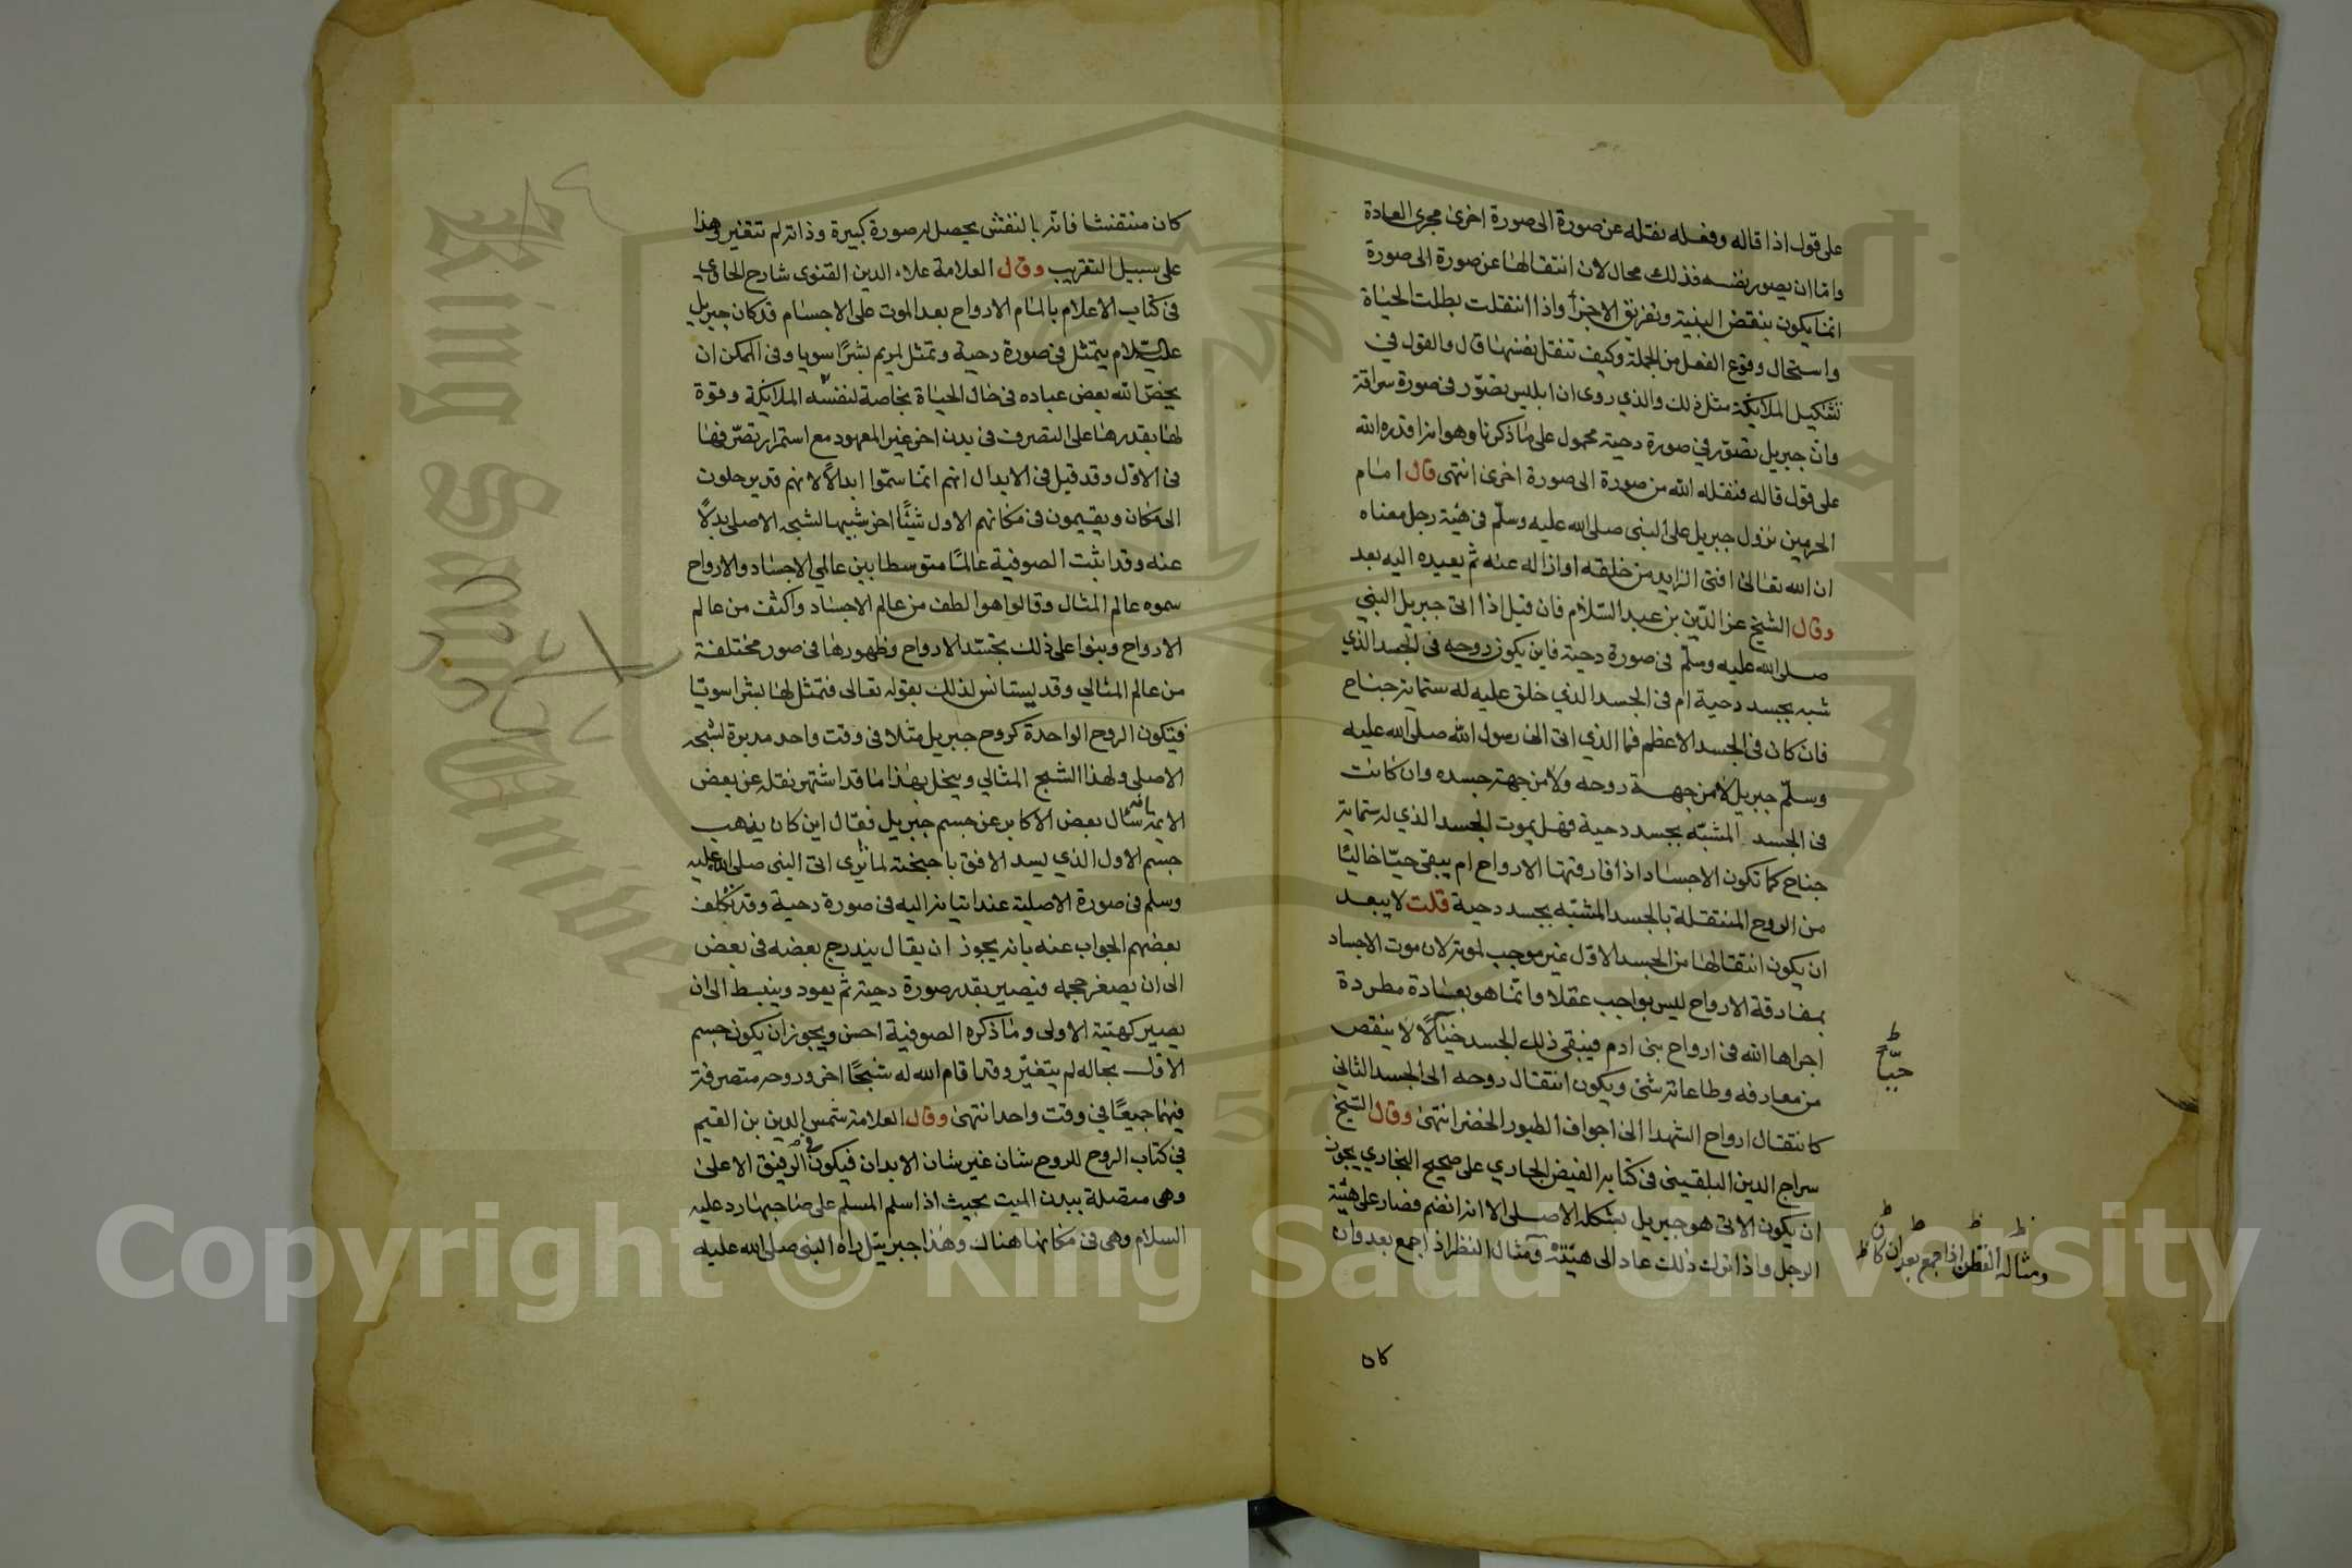 على قول اذا قاله وفعله نقله عن صورة الى صورة اخرى مجرى العادة
واما ان يصور نفسه فذلك محال لان انتقالها عن صورة الى صورة
انما يكون بنقض البنية وتفريق الاجزآ واذا انتقلت بطلت الحياة
واستحال وقوع الفعل من الجملة وكيف تنقل نفسها قال والقول في
تشكيل الملايكة مثل ذلك والذي روى ان ابليس تصوّر في صورة سراقة
وان جبريل تصور في صورة دحية محمول على ما ذكرنا وهو انه اقدره الله
على قول قاله فنقله الله من صورة الى صورة اخرى انتهى قال امام
الحرمين نزول جبريل على النبى صلى الله عليه وسلّم في هيئة رجل معناه
ان الله تعالى افنى الزايد من خلقه او ازاله عنه ثم يعيده اليه بعد
وقال الشيخ عز الدّين بن عبد السّلام فان قيل اذا اتى جبريل النبي
صلى الله عليه وسلّم في صورة دحية فاين يكون روحه في الجسد الذي
شبه بجسد دحية ام في الجسد الذي خلق عليه له ستماية جناح
فان كان في الجسد الاعظم فما الذي اتى الى رسول الله صلى الله عليه
وسلّم جبريل لا من جهة روحه ولا من جهة جسده وان كانت
في الجسد المشبّه بجسد دحية فهل يموت الجسد الذي له ستماية
جناح كما تكون الاجساد اذا فارقتها الارواح ام يبقى حيّا خاليًا
من الروح المنتقلة بالجسد المشبّه بجسد دحية قلت لا يبعد
ان يكون انتقالها من الجسد الاوّل غير موجب لموته لان موت الاجساد
بمفارقة الارواح ليس بواجب عقلا وانما هو بعادة مطردة
اجراها الله في ارواح بنى ادم فيبقى ذلك الجسد لا ينقص
حيّا
من معارفه وطاعاته شئ ويكون انتقال روحه الى الجسد الثاني
كانتقال ارواح الشهدا الى اجواف الطيور الخضر انتهى وقال الشيخ
سراج الدين البلقينى في كتابه الفيض الجاري على صحيح البخاري يجوز
ان يكون الاتى هو جبريل بشكله الاصلى الا انه انضم فصار على هيئة
الرجل واذا ترك ذلك عاد الى هيئته ومثال النظر اذ اجمع بعد وان
ومثاله القطن اذا جمع بعد ان كا
كان
كان منتفشا فانه بالنفش يحصل له صورة كبيرة وذاته لم تتغير وهذا
على سبيل التقريب وقال العلامة علاء الدين القنوى شارح الحاوي
في كتاب الاعلام بالمام الارواح بعد الموت على الاجسام قد كان جبريل
عليه السلام يتمثل في صورة دحية وتمثل لمريم بشرًا سويا وفي الممكن ان
يخصّ الله بعض عباده في حال الحياة بخاصة لنفسه الملايكة وقوة
لها يقدرها على التصرف في بدن اخر غير المعهود مع استمرار تصرّفها
في الاوّل وقد قيل في الابدال انهم انما سمّوا ابدالًا لانهم قد يرحلون
الى مكان ويقيمون في مكانهم الاول شيئًا اخر شبيها لشبحه الاصلى بدلًا
عنه وقد اثبت الصوفية عالمًا متوسطا بين عالمي الاجساد والارواح
سموه عالم المثال وقالوا هو الطف من عالم الاجساد واكثف من عالم
الارواح وبنوا على ذلك تجسّد الارواح وظهورها في صور مختلفة
من عالم المثالي وقد يستانس لذلك بقوله تعالى فتمثل لها بشرا سويّا
فتكون الروح الواحدة كروح جبريل مثلا في وقت واحد مدبرة لشبحه
الاصلي ولهذا الشبح المثالي وينحل بهذا ما قد اشتهر نقله عن بعض
الايمة سأل بعض الاكابر عن جسم جبريل فقال اين كان يذهب
جسم الاول الذي يسد الافق باجنحته لما اتى النبى صلى الله عليه
وسلم في صورة الاصلية عند اتيانه اليه في صورة دحية وقد تكلف
بعضهم الجواب عنه بانه يجوز ان يقال يندرج بعضه في بعض
الى ان يصغر حجمه فيصير بقدر صورة دحية ثم يعود وينبسط الى ان
يصير كهيئة الاولى وما ذكره الصوفية احسن ويجوز ان يكون جسم
الاول بحاله لم يتغيّر وقد اقام الله له شبحًا اخر وروحه متصرفة
فيهما جميعًا في وقت واحد انتهى وقال العلامة شمس الدين بن القيم
في كتاب الروح للروح شان غير شان الابدان فيكون في الرفيق الاعلى
وهى متصلة ببدن الميت بحيث اذا سلم المسلم على صاحبها رد عليه
السلام وهي في مكانها هناك وهذا جبرييل راه النبى صلى الله عليه
Copyright © King Saud University